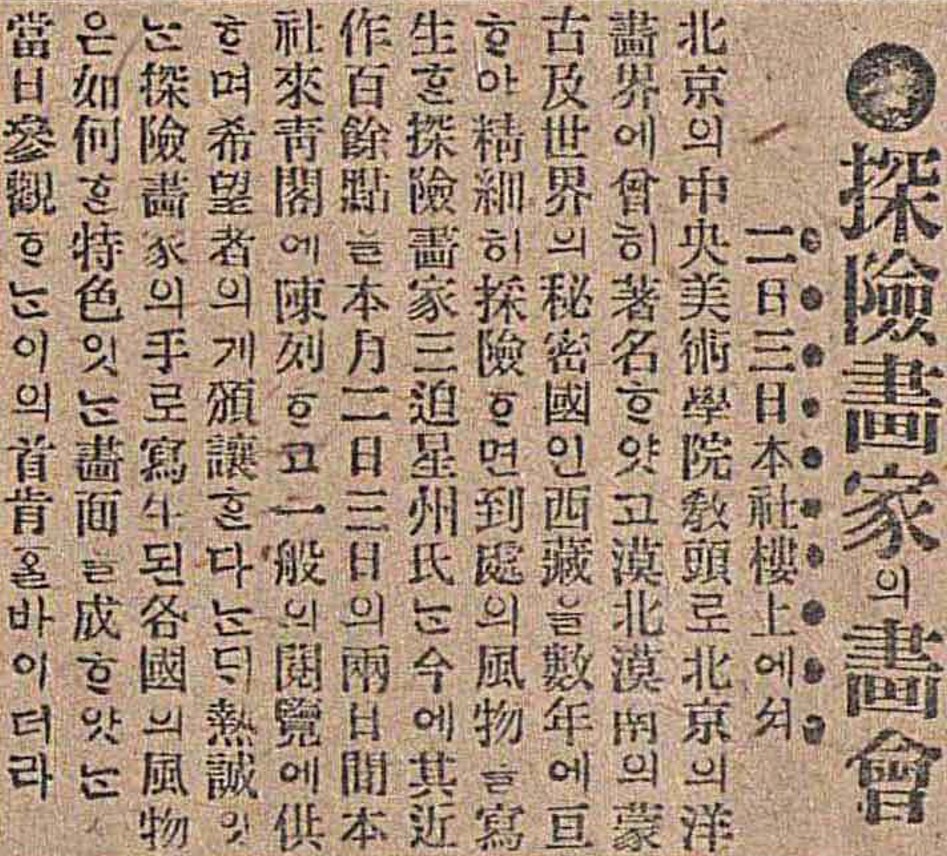 ●探險畵家의畵會
二日三日本社樓上에셔
北京의中央美術學院敎頭로北京의洋
畵界에曾히著名ᄒᆞ얏고漠北漠南의蒙
古及世界의秘密國인西藏을數年에亘
ᄒᆞ야精細히探險ᄒᆞ면到處의風物을寫
生ᄒᆞᆫ探險畵家三迫星州氏ᄂᆞᆫ今에其近
作百餘點을本月二日三日의兩日間本
社來靑閣에陳列ᄒᆞ고一般의閱覽에供
ᄒᆞ며希望者의게頒讓ᄒᆞᆫ다ᄂᆞᆫᄃᆡ熱誠잇
ᄂᆞᆫ探險畵家의手로寫生된各國의風物
은如何ᄒᆞᆫ特色잇ᄂᆞᆫ畵面을成ᄒᆞ얏ᄂᆞᆫ
當日參觀ᄒᆞᄂᆞᆫ이의首肯ᄒᆞᆯ바이더라